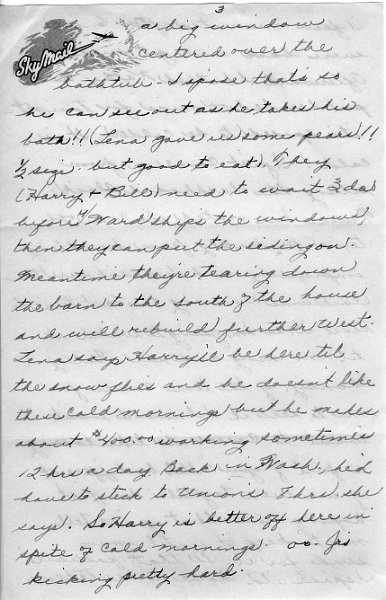 3
Sky Mail
a big window
centered over the
bathtub - I spose that's so
he can see out as he takes his
bath!! (Lena gave us some pears!!
1/2 size but good to eat). They
(Harry & Bill) need to wait 3 da
before Ward ships the windows,
then they can put the siding on.
Meantime they're tearing down
the barn to the south of the house
and will rebuild further West.
Lena says Harry'll be here til
the snow flies and he doesn't like
these cold mornings but he makes
about $400.00 working sometimes
12 hrs a day. Back in Wash., he'd
have to stick to Union's 7 hrs she
says. So Harry is better off here in
spite of cold mornings.
kicking pretty hard.